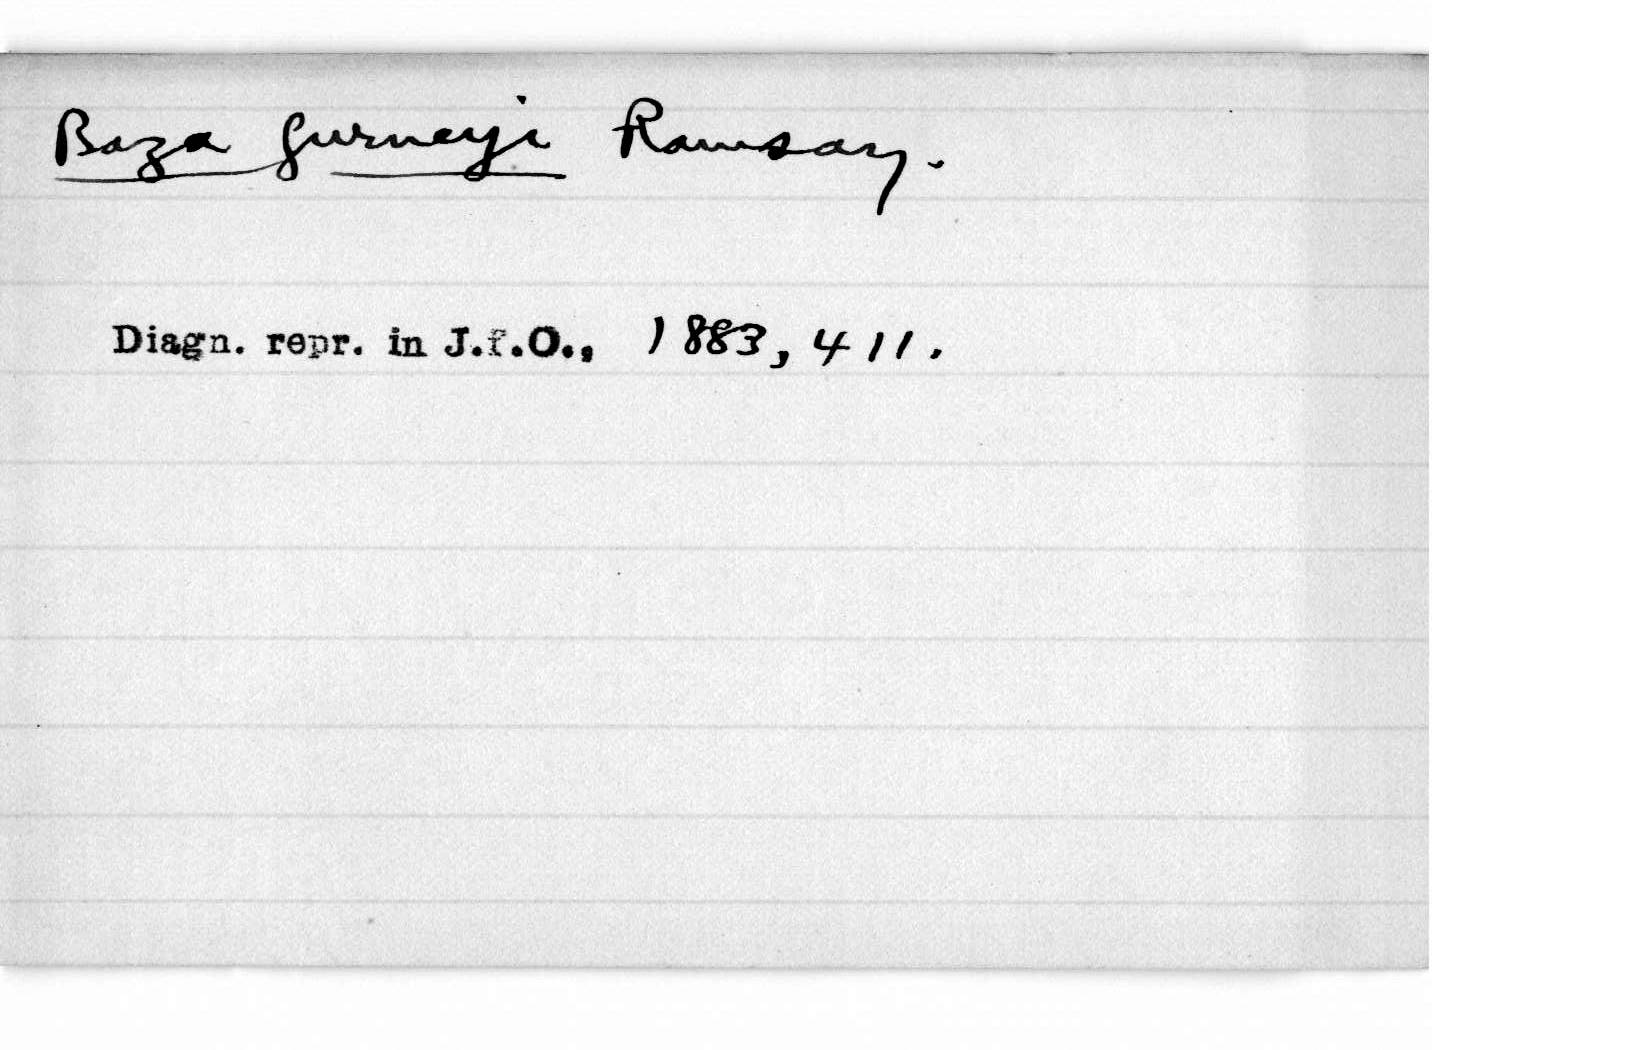 Baza gurneyi Ramsay.
Diagn. repr. in J.f.O., 1883, 411.